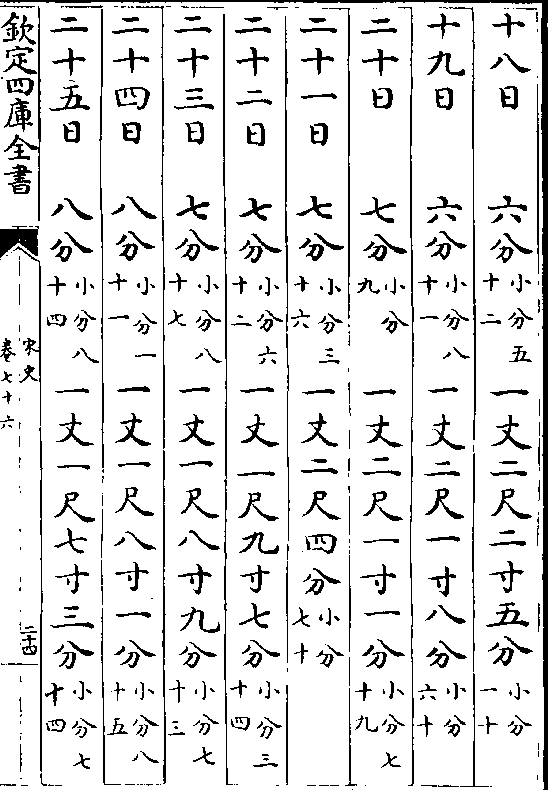 十八日　六分小分五十二　一丈二尺二寸五分小分一十
十九日　六分小分八十一　一丈二尺一寸八分小分六十
二十日　七分小分九　一丈二尺一寸一分小分七十九
二十一日　七分小分三十六　一丈二尺四分小分七十
二十二日　七分小分六十二　一丈一尺九寸七分小分三十四
二十三日　七分小分八十七　一丈一尺八寸九分小分七十三
二十四日　八分小分一十一　一丈一尺八寸一分小分八十五
二十五日　八分小分八十四　一丈一尺七寸三分小分七十四
欽定四庫全書
宋史
卷七十六
二十四